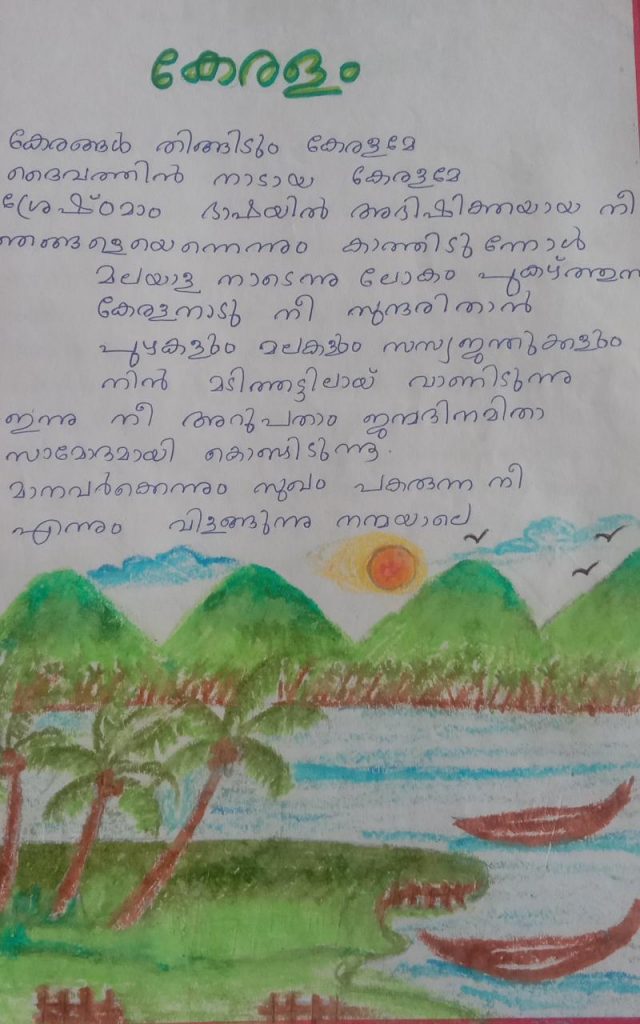 കേരളം
കേരങ്ങൾ തിങ്ങിടും കേരളമേ
ദൈവത്തിൻ നാടായ കേരളമേ
ശ്രേഷ്ഠമാം ഭാഷയിൽ അഭിഷിക്തയായ നീ
ഞങ്ങളെയെന്നെന്നും കാത്തിടുന്നോൾ
മലയാള നാടെന്നു ലോകം പുകഴ്ത്തുന്ന
കേരളനാടു നീ സുന്ദരിതാൻ
പുഴകളും മലകളും സസ്യജന്തുക്കളും
നിൻ മടിത്തട്ടിലായ് വാണിടുന്നു
ഇന്നു നീ അറുപതാം ജന്മദിനമിതാ
സാമോദമായി കൊണ്ടിടുന്നു.
മാനവർക്കെന്നും സുഖം പകരുന്ന നീ
എന്നും വിളങ്ങുന്നു നന്മയാലെ